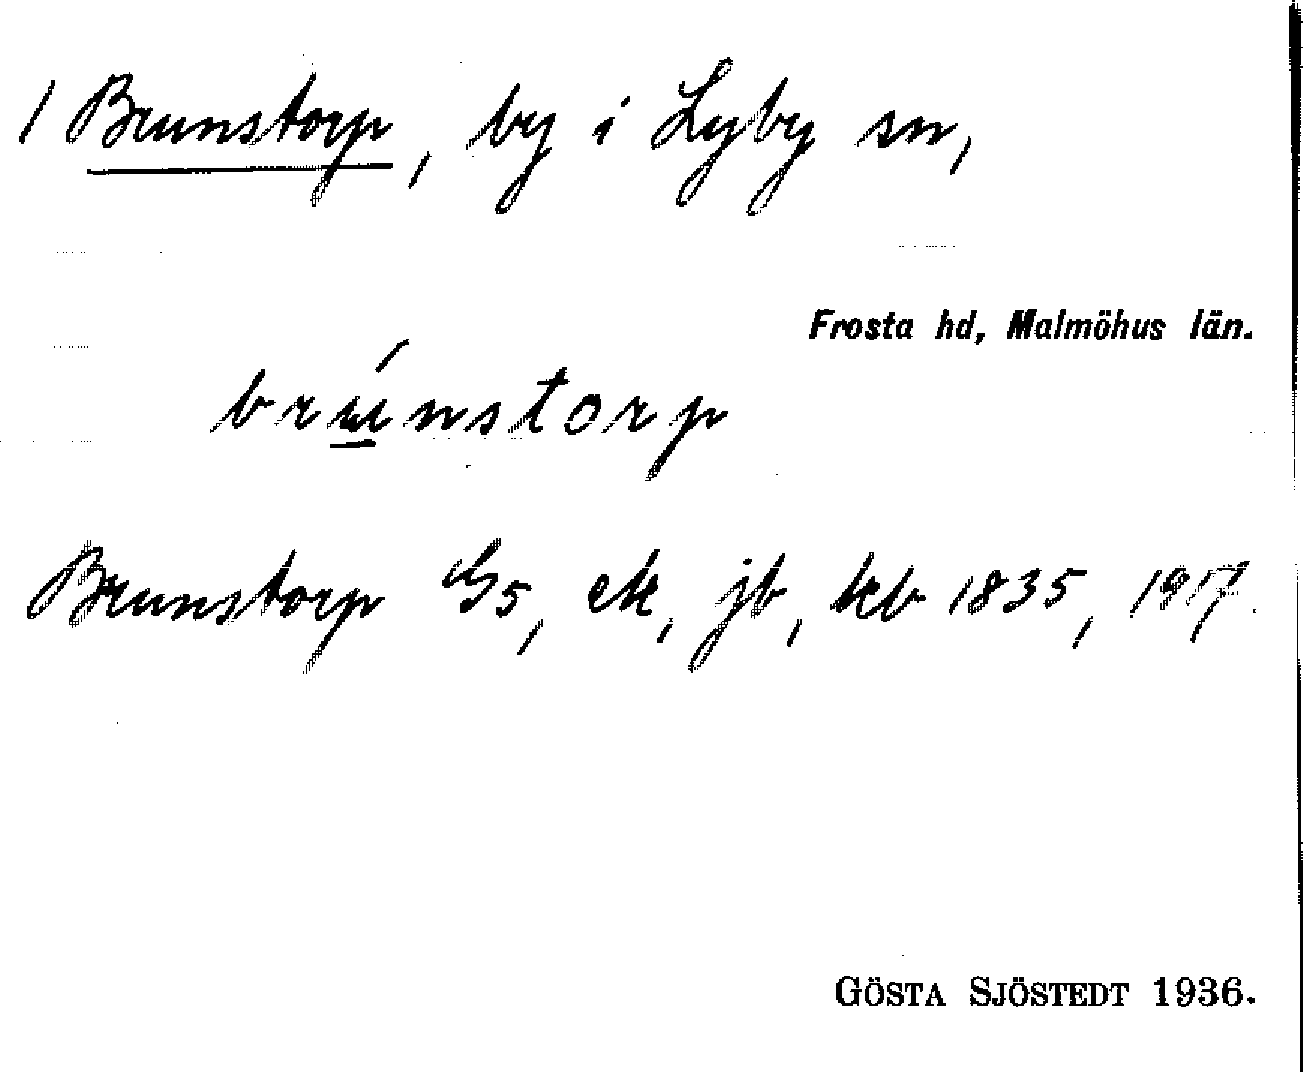 1 Brunstorp, by i Lyby sn,
Frosta hd, Malmöhus län.
brúnstorp
Brunstorp G5, ek, jb, kb 1835, 1917.
GÖSTA SJÖSTEDT 1936.